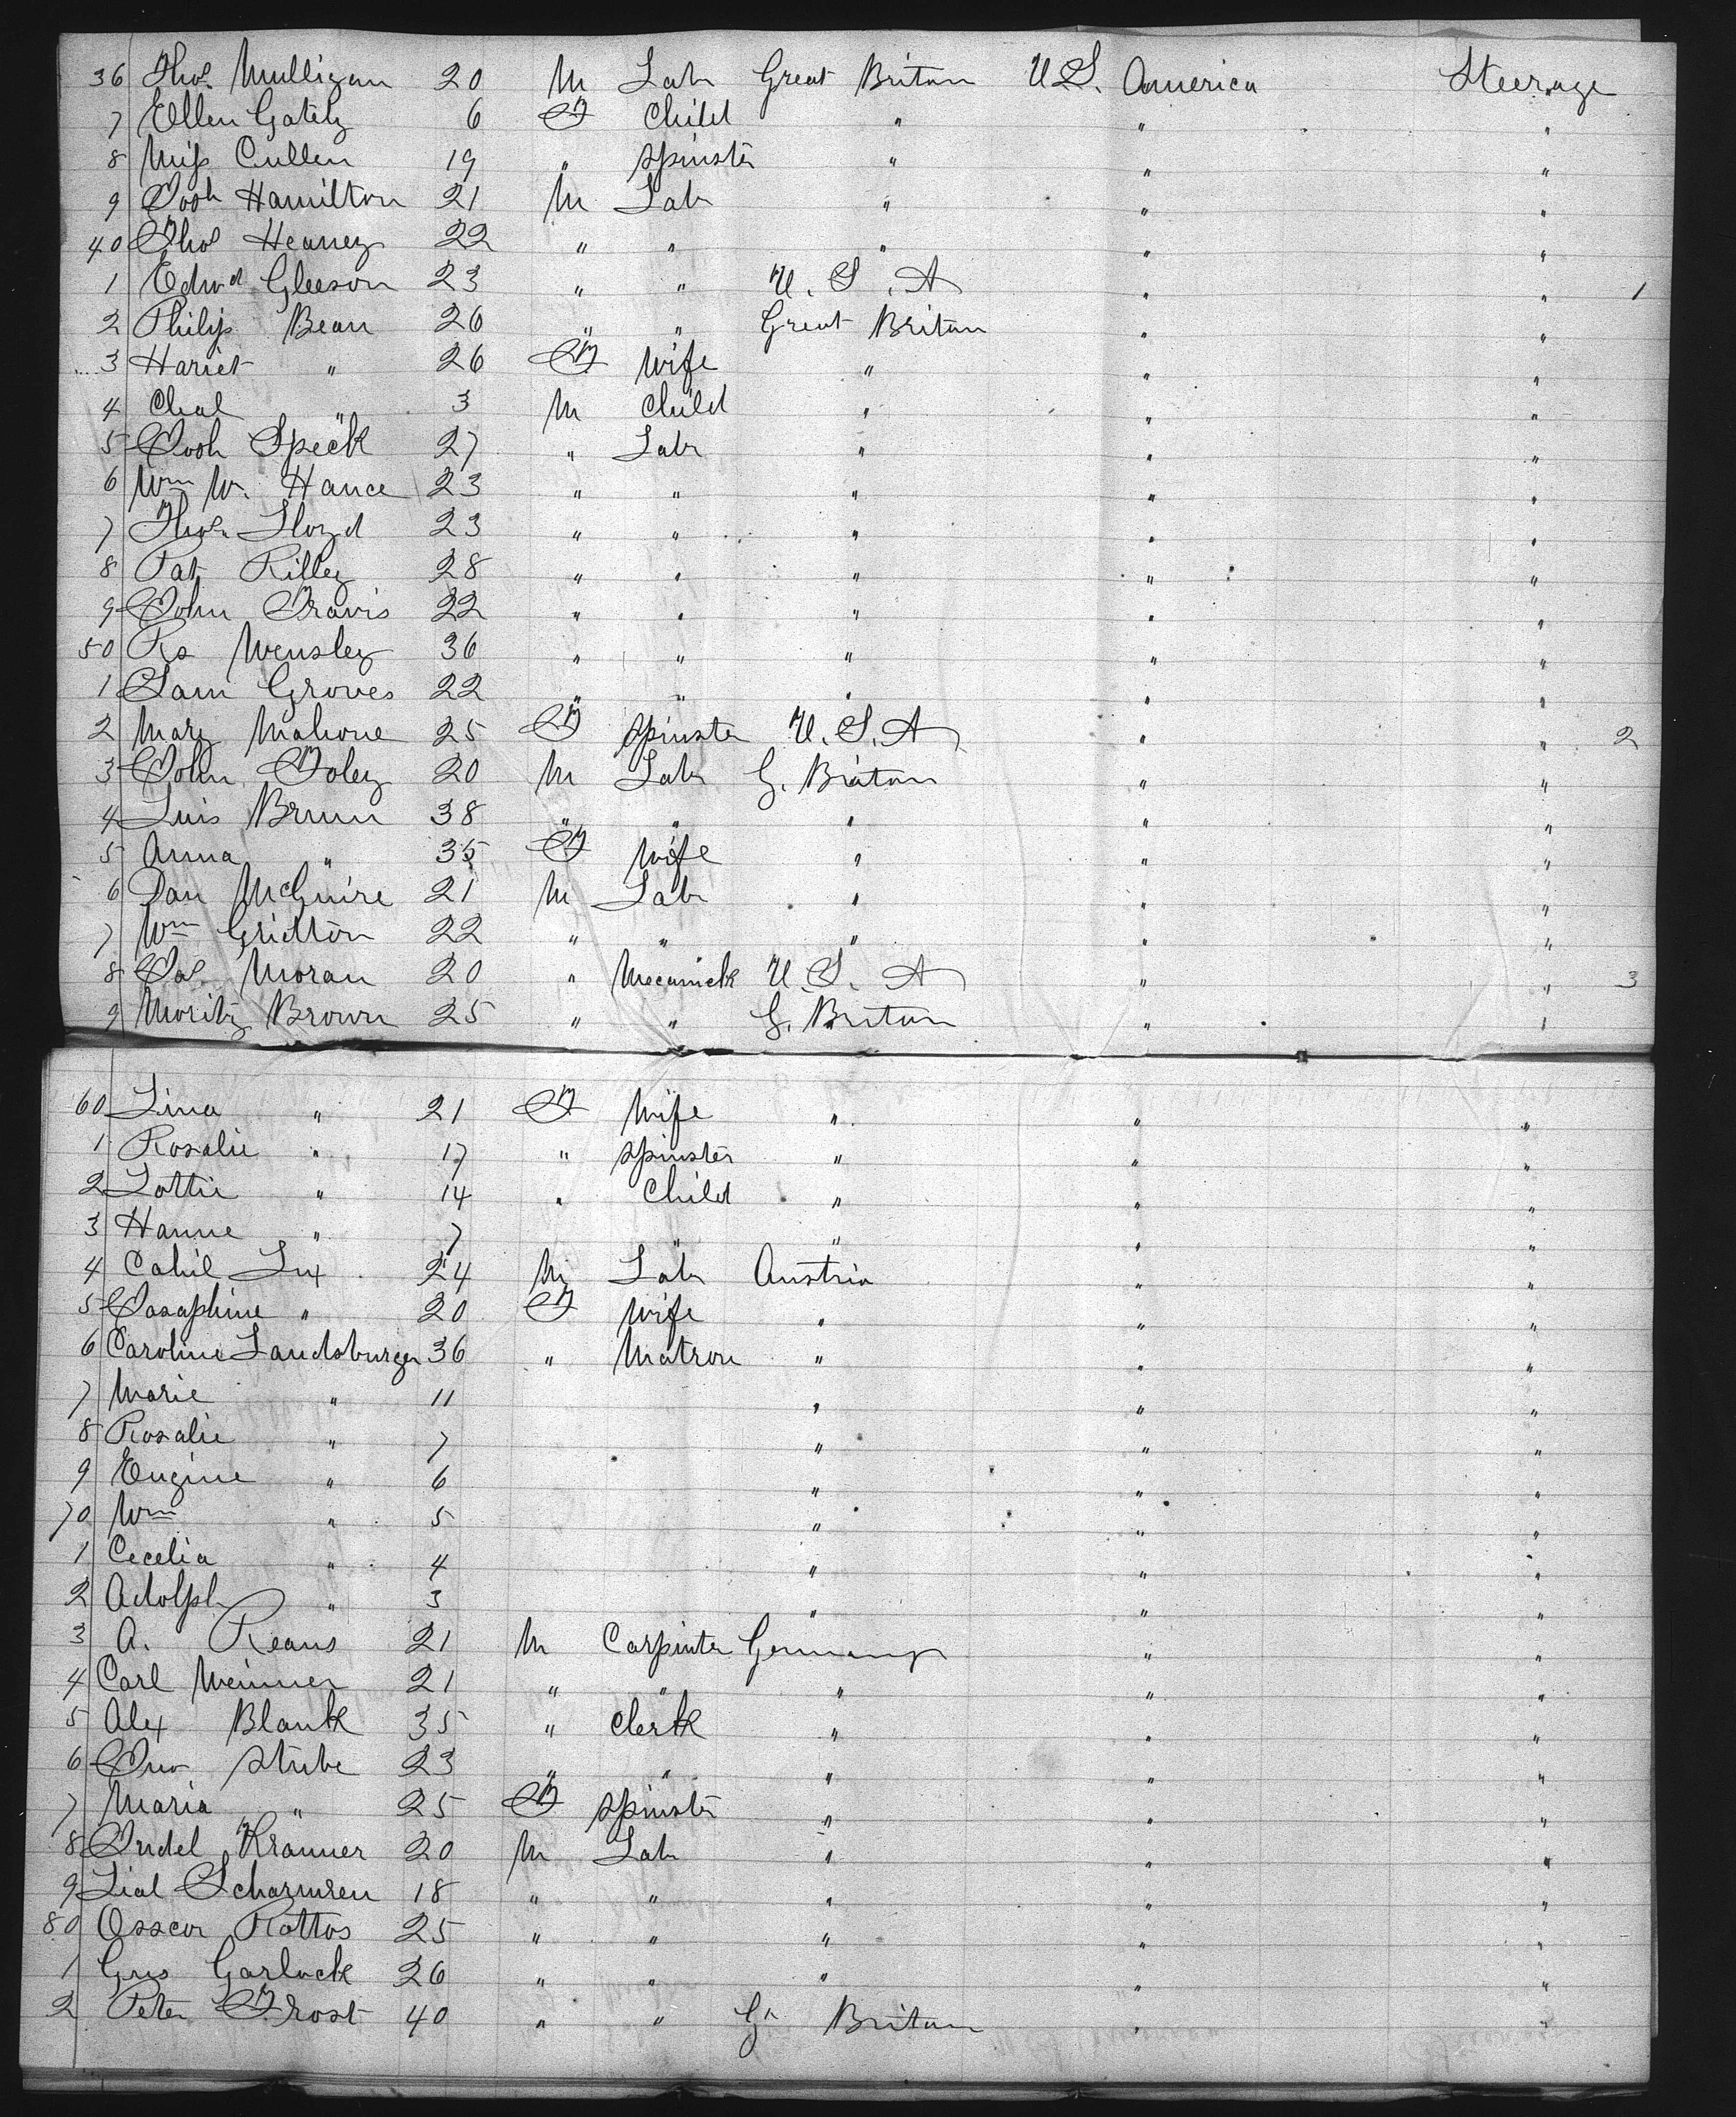 36 Thos. Mulligan 20 M Lab Great Britan U.S. America Steerage
7 Ellen Gately 6 F Child " " "
8 Miss Cullen 19 " Spinster " " "
9 Josh Hamilton 21 M Lab " " "
40 Thos Heaney 22 " " " " "
1 Edwd Gleeson 23 " " U.S.A " " 1
2 Philip Bean 26 " " Great Britan " "
3 Hariet " 26 F Wife " " "
4 Chas " 3 M Child " " "
5 Josh Speck 27 " Labr " " "
6 Wm W. Hance 23 " " " " "
7 Thos. Lloyd 23 " " " " "
8 Pat Rilley 28 " " " " "
9 John Travis 22 " " " " "
50 Rs Wensley 36 " " " " "
1 Sam Groves 22 " " " " "
2 Mary Mahone 25 F Spinster U.S.A " " 2
3 John Foley 20 M Lab G. Britan " "
4 Luis Brun 38 " " " " "
5 Anna " 35 F Wife " " "
6 Dan McGuire 21 M Lab " " "
7 Wm Gridton 22 " " " " "
8 Jas. Moran 20 " Mecanick U.S.A " " 3
9 Moritz Brown 25 " " G. Britan " "
60 Lina " 21 F Wife " " "
1 Rosalie " 17 " Spinster " " "
2 Lottie " 14 " Child " " "
3 Hanne " 7 " " " "
4 Cahil Lux 24 M Lab Austria " "
5 Josaphine " 20 F Wife " " "
6 Caroline Landsburger 36 " Matron " " "
7 Marie " 11 " " "
8 Rosalie " 7 " " "
9 Eugine " 6 " " "
70 Wm " 5 " " "
1 Cecelia " 4 " " "
2 Adolph " 3 " " "
3 A. Reans 21 M Carpinter Germany " "
4 Carl Weimmer 21 " " " " "
5 Alex Blank 35 " Clerk " " "
6 Stube 23 " " " " "
7 Maria " 25 F Spinster " " "
8 Judel Kramer 20 M Lab " " "
9 18 " " " " "
80 Osscor Rottos 25 " " " " "
1 Gus Garlock 26 " " " " "
2 Peter Frost 40 " " Gr Britan " "